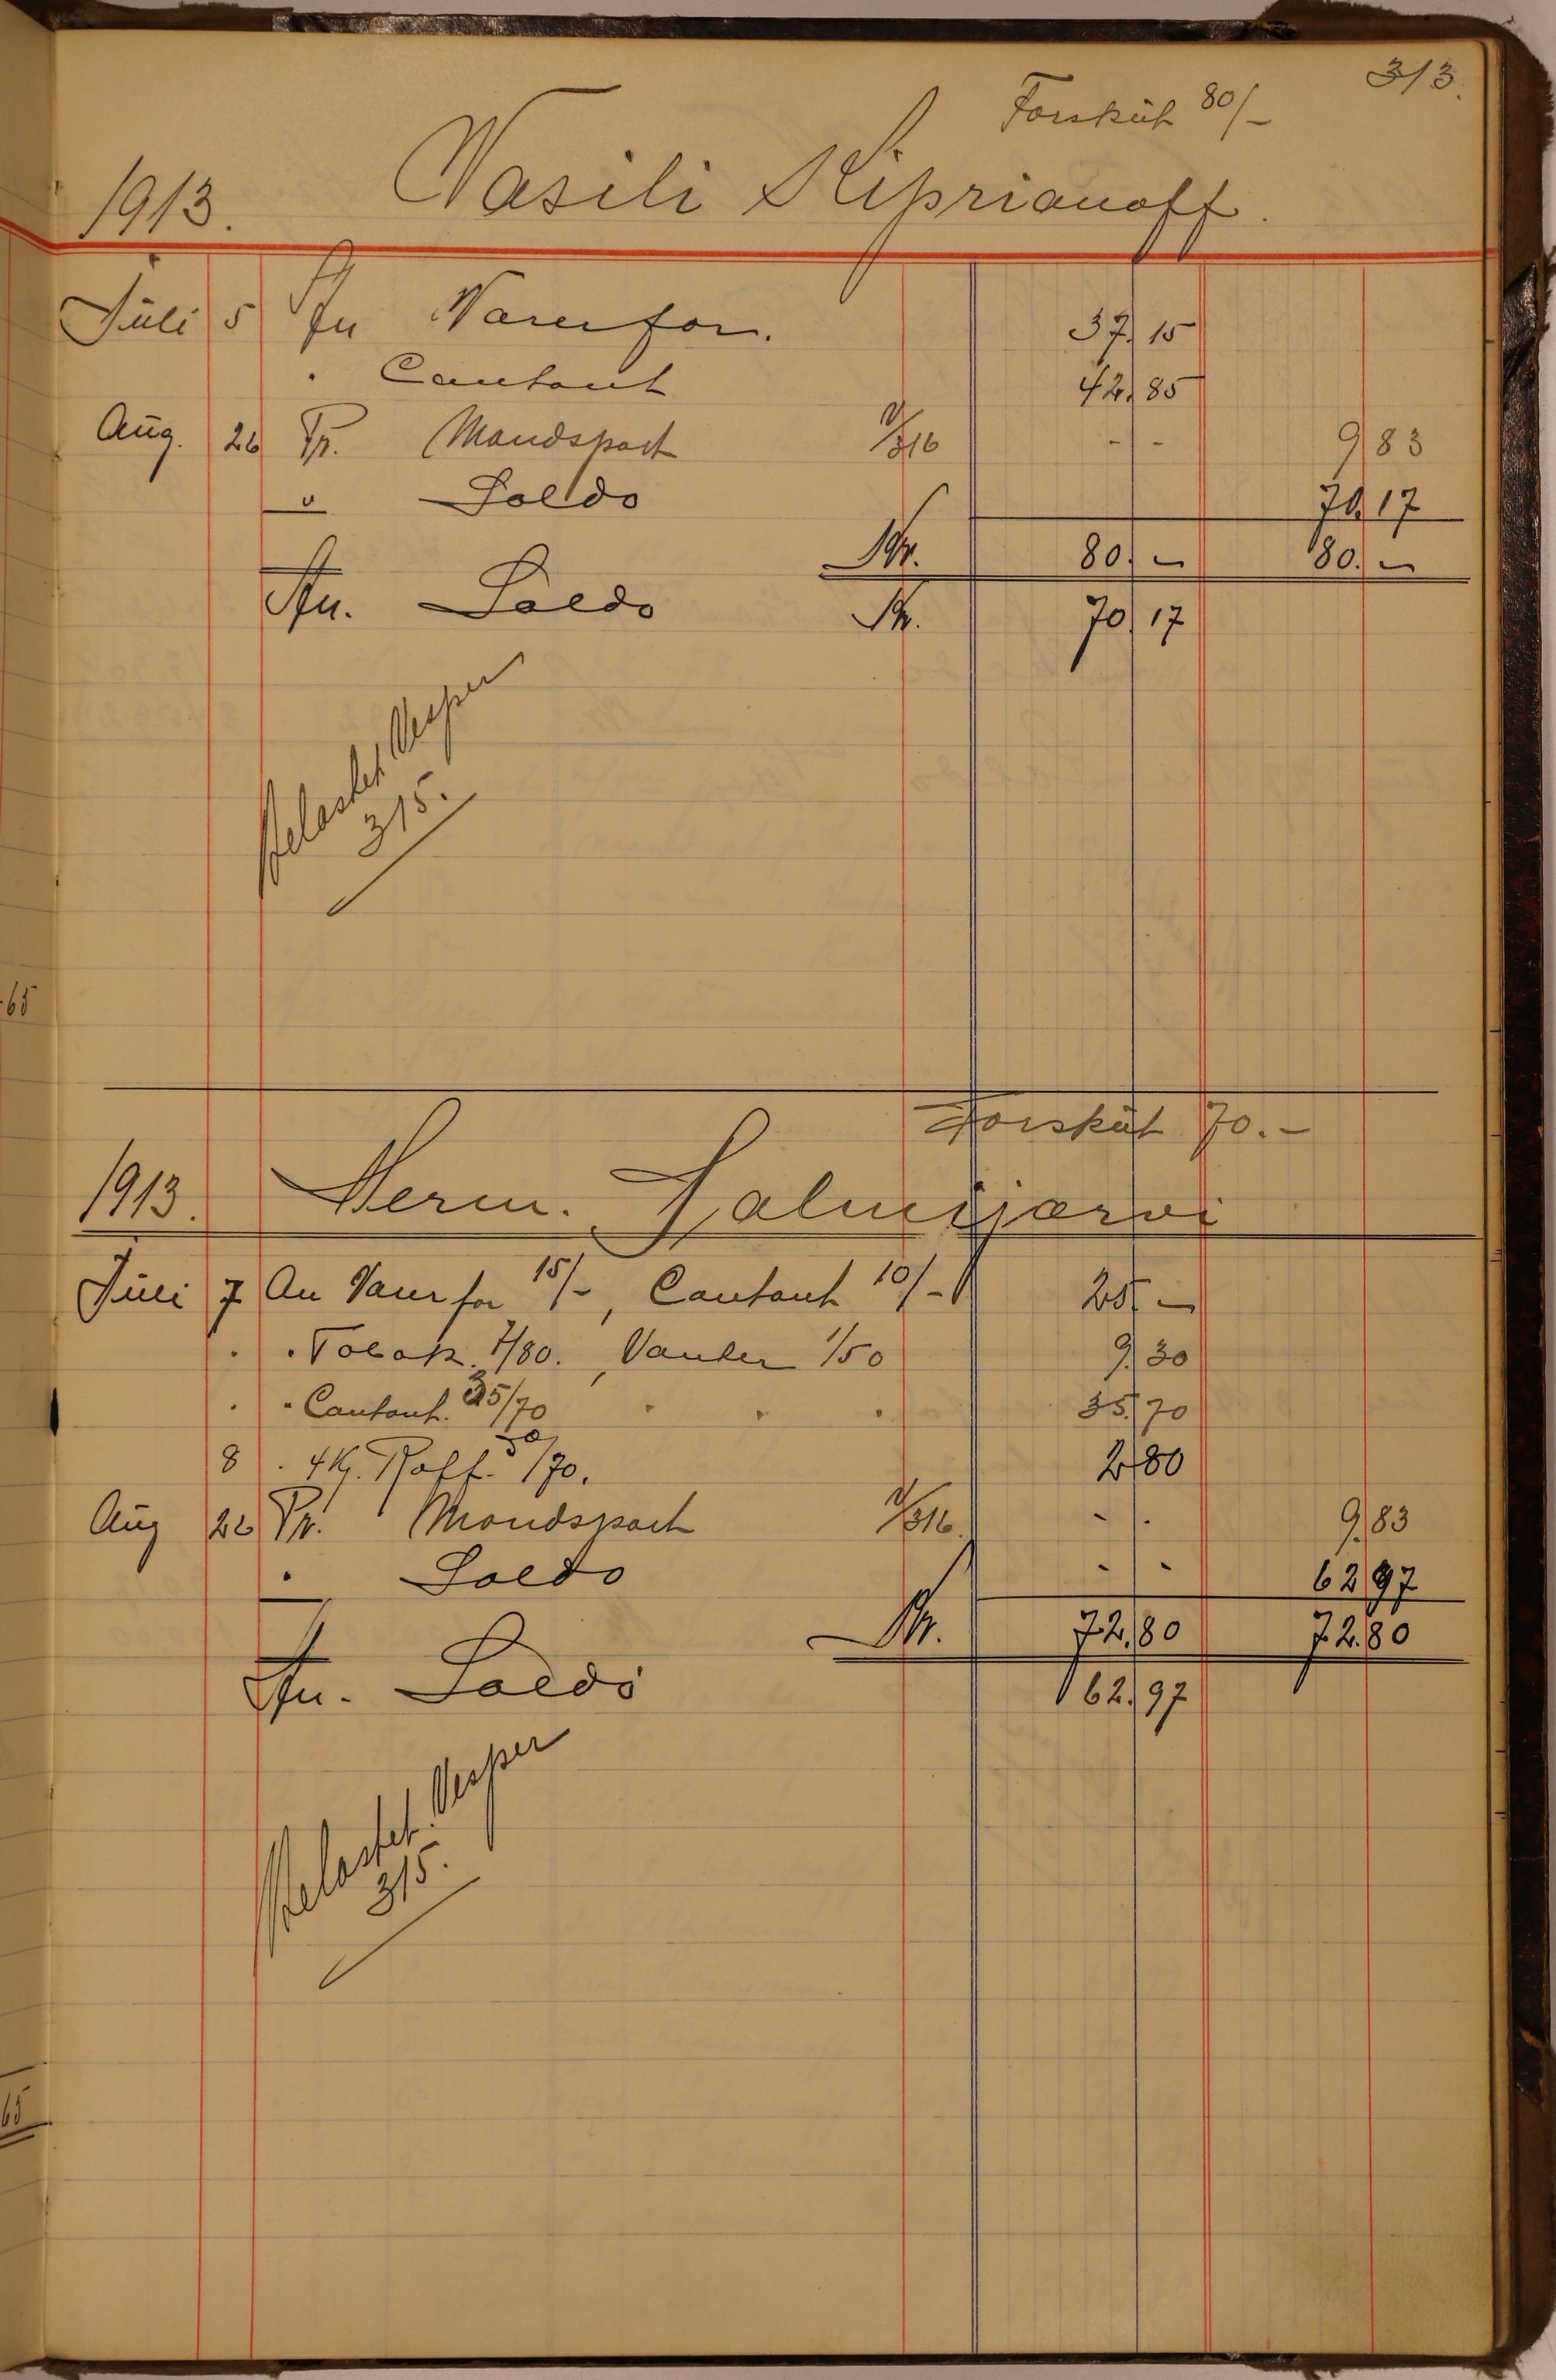 313.
Forskút 80/-
1913. Wasili Kiprianoff.
Júli 5 An Varer for. 37.15
" Contant 42.85
Aúg. 26 Pr. Mandspart V/316 - - 9 83
" Saldo 70.17
Kr. 80. - 80. -
An. Saldo Kr. 70.17
Belastet Vesper
315.
65
Forskút 70.-
1913. Herm. Salmijærvi
Júli 7 An Varer for 15/-, Contant 10/- 25. -
" " Tobak. 7/80. , Vanter 1/50 9.30
" " Contant. 35/70 " " " 35.70
8 " 4 Kg. Raff. /70. 2 80
Aúg 26 Pr. Mandspart V/316. - - 9.83
" Saldo - - 62 97
Kr. 72.80 72.80
An. Saldo 62.97
Belastet. Vesper
315.
65